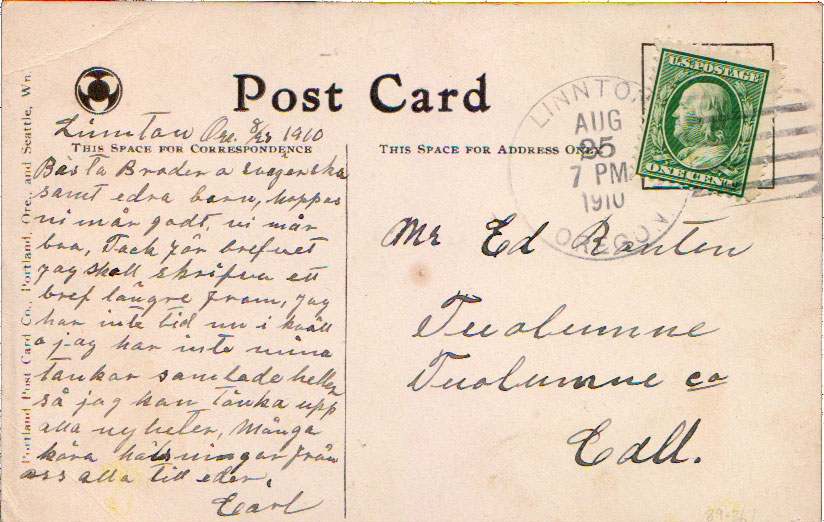 Post Card
Linnton Ore. 8/25 1910
THIS SPACE FOR CORRESPONDENCE
Bästa Broder o svägerska
samt edra barn, hoppas
ni mår godt, vi mår
bra, Tack för brefvet
jag skall skrifva ett
bref längre fram, jag
har inte tid nu i kväll
o jag har inte mina
tankar samlade heller
så jag kan tänka upp
alla nyheter, Många
kära hälsningar från
oss alla till eder.
Carl
Portland Post Card Co., Portland, Ore. and Seattle, Wn.
THIS SPACE FOR ADDRESS ONLY
U.S. POSTAGE
ONE CENT
LINNTON
AUG
25
7 PM
1910
OREGON
Mr Ed Ranten
Tuolumne
Tuolumne co
Call.